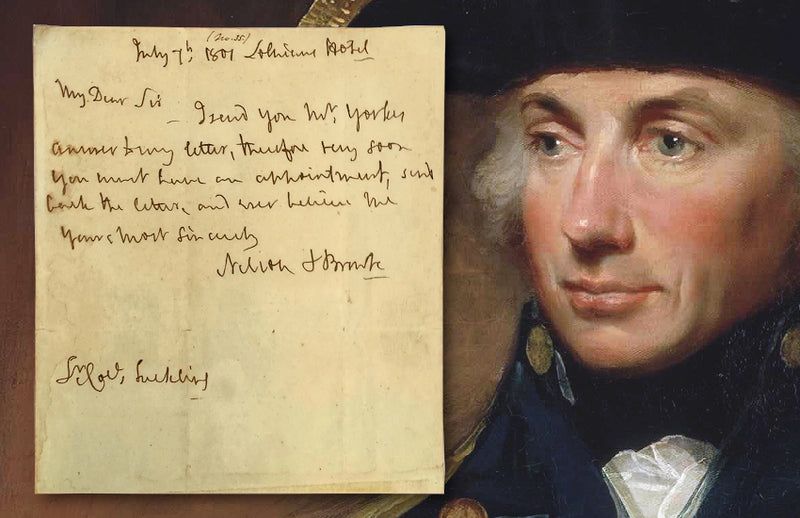 (No. 35.)
July 7th: 1801 Lothians Hotel
My Dear Sir
I send you Mr. Yorkes
answer to my letter, therefore very soon
you must have an appointment, send
back the letter, and ever believe me
Yours most Sincerely
Nelson & Bronte
Lt. Col. Suckling